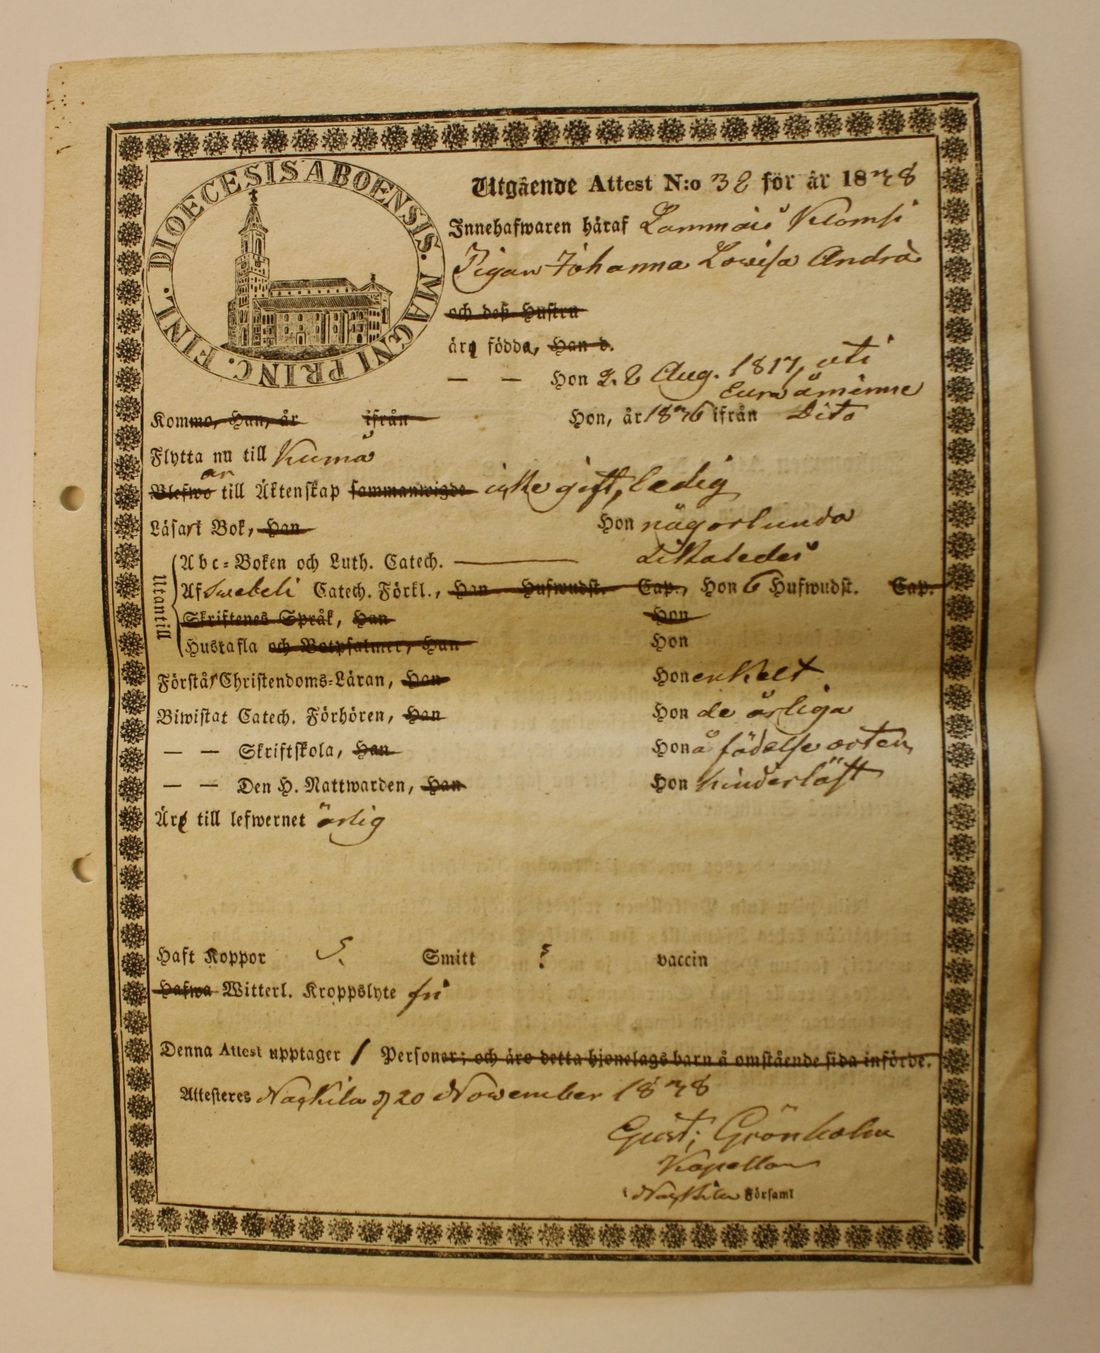 DIOECESIS ABOENSIS. MAGNI PRINC. FINL.
Utgående Attest N:o 38 för år 1838
Innehafwaren häraf Lammais Klomsi
Pigan Johanna Lovisa
och deß Hustru
äro födda, Han d.
— — Hon d. 8 Aug. 1817, uti
Euraåminne
Kommo, Han, år ifrån Hon, år 1836 ifrån Dito
Flytta nu till Kumå
är
Blefwo till Äktenskap sammanwigde icke gift, ledig
Läsa i Bok, Han Hon någorlunda
Utantill
Abc-Boken och Luth. Catech. Likaledes
Af Swebeli Catech. Förkl., Han Hufwudst. Cap., Hon 6 Hufwudst. Cap.
Skriftenes Språk, Han Hon
Hustafla och Botpsalmer, Han Hon
Förstå Christendoms-Läran, Han Hon enkelt
Biwistat Catech. Förhören, Han Hon de årliga
— — Skriftskola, Han Hon å födelse orten
— — Den H. Nattwarden, Han Hon hinderlöst
Äro till lefwernet ärlig
Haft Koppor ? Smitt ? vaccin
Hafwa Witterl. Kroppslyte fri
Denna Attest upptager 1 Personer; och äro detta hjonelags barn å omstående sida införde.
Attesteres Nackila d 20 November 1838
Gust; Grönholm
Kapellan
i Nackila Församl